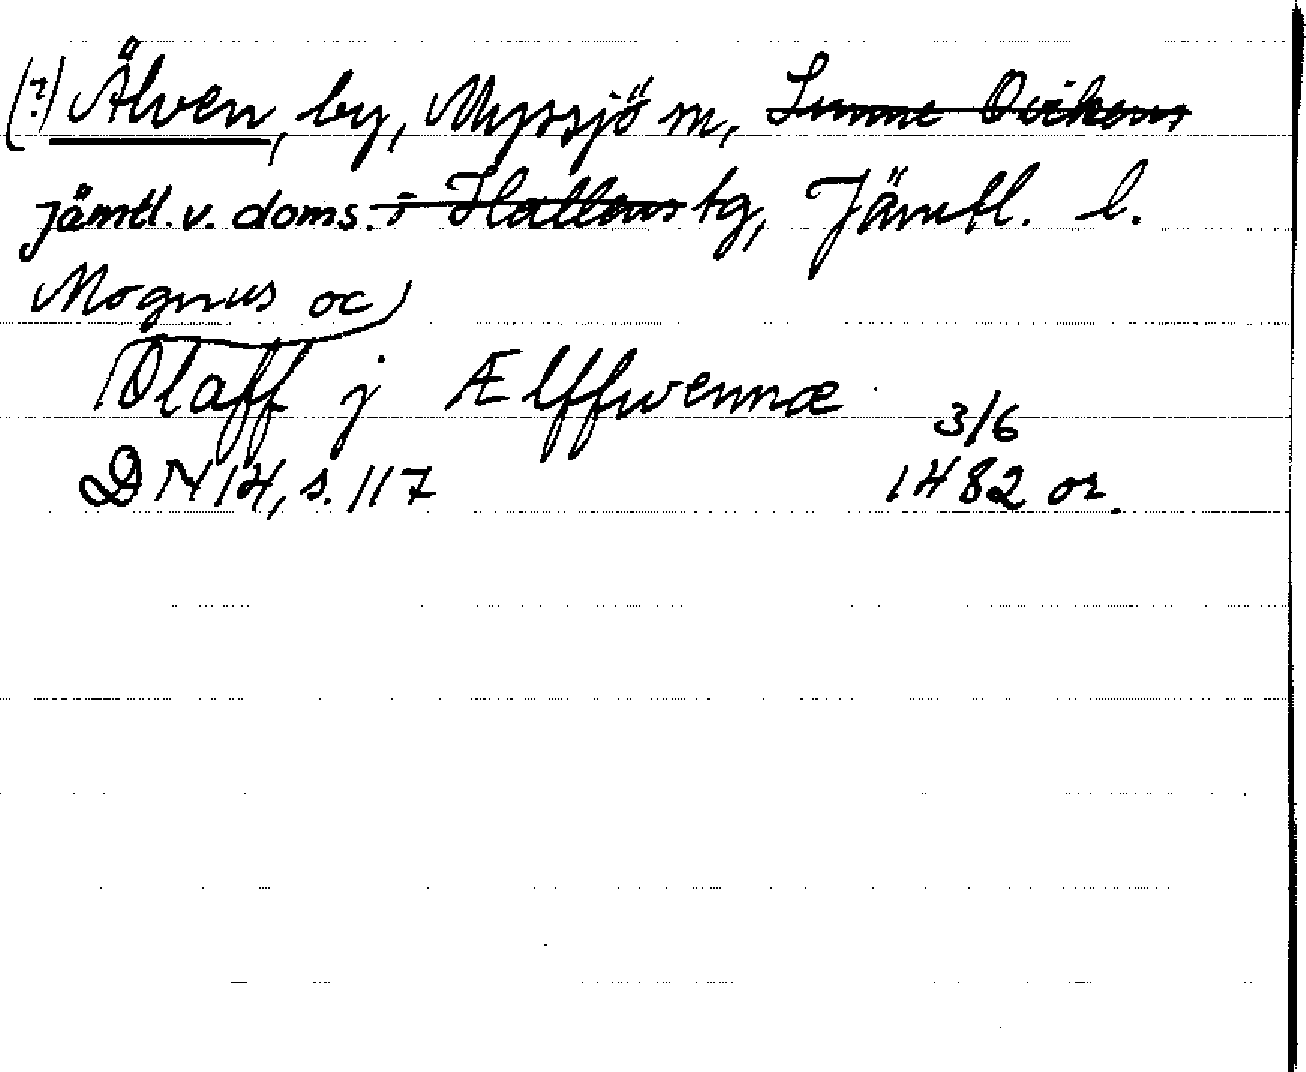 (?) Älven, by, Myssjö sn, Sunne Ovikens
jämtl. v. doms. i Hallens tg, Jämtl. l.
Mognus oc
Olaff j Ælffwennæ
3/6
DN 14, s. 117 1482 or.